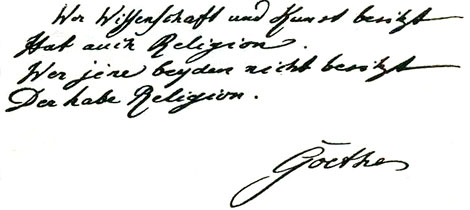 Wer Wissenschaft und Kunst besitzt
Hat auch Religion.
Wer jene beyden nicht besitzt
Der habe Religion.
Goethe